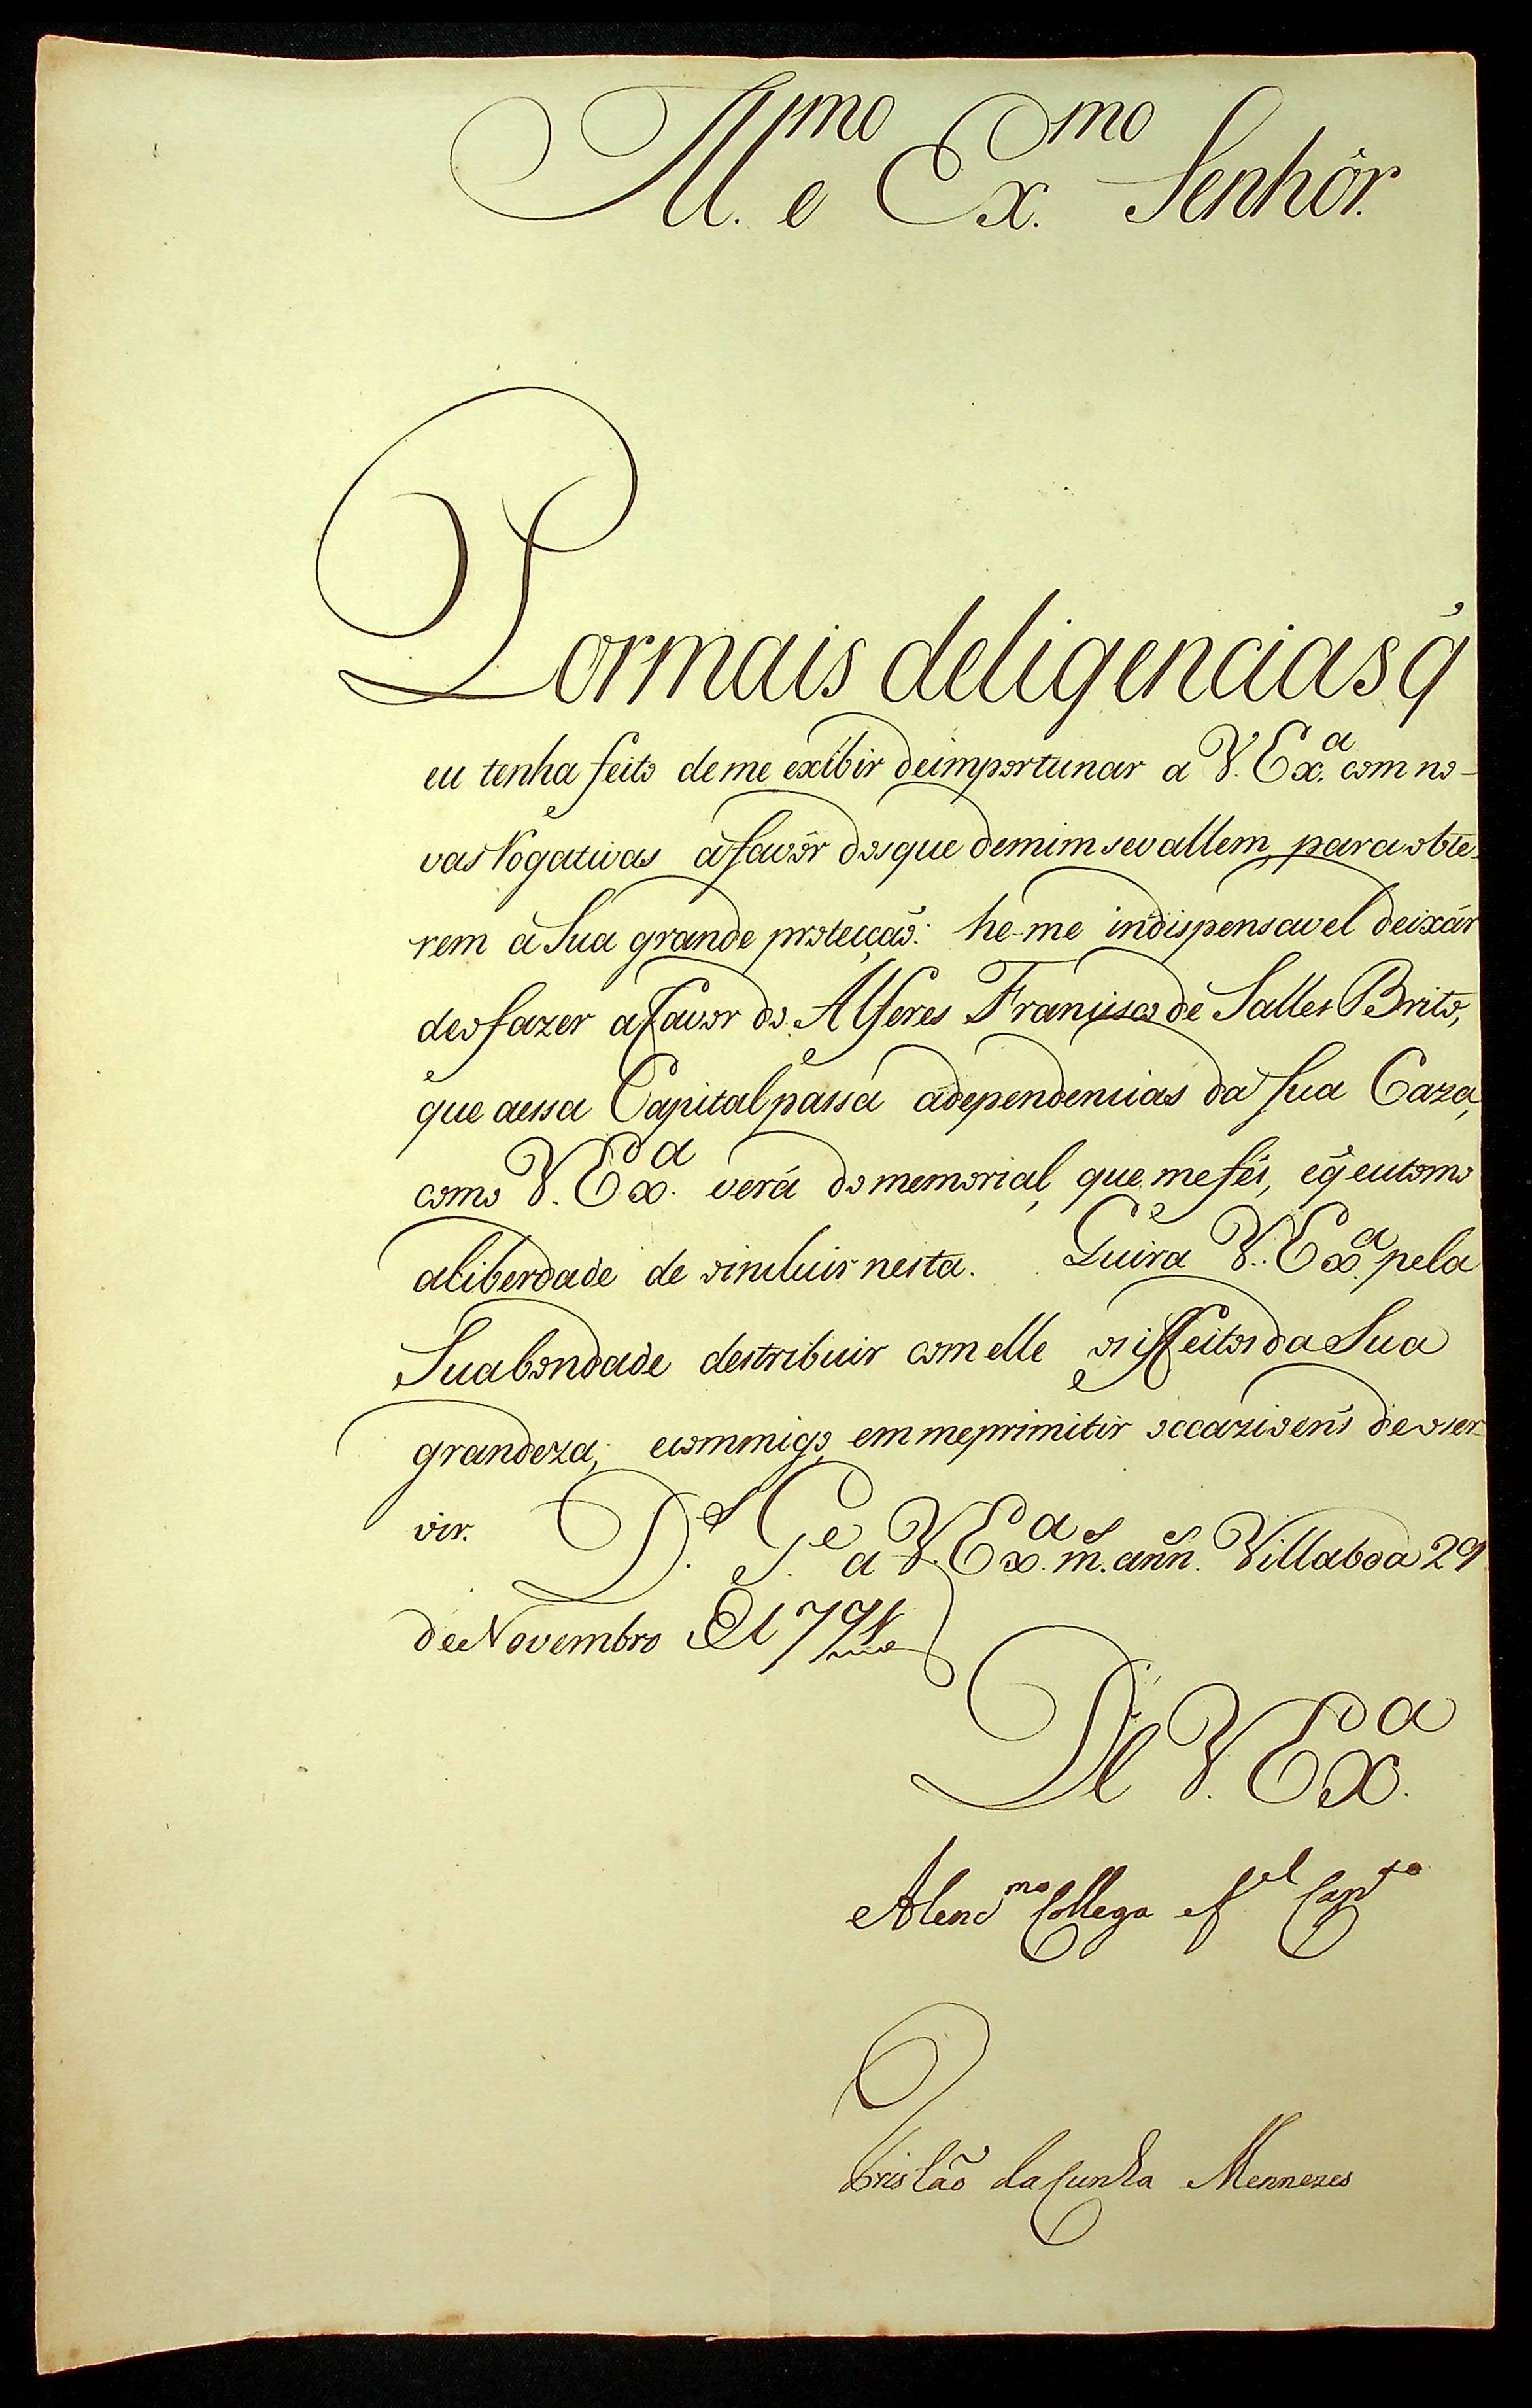 Ill.mo e Ex.mo Senhôr.
Por mais deligencias q̃
eu tenha feito de me exibir de importunar a V. Ex.a com no-
vas rogativas a favôr dos que de mim se vallem, para obte-
rem a Sua grande proteiçaõ: he-me indispensavel deixár
de o fazer a favor do Alferes Francisco de Salles Brito,
que a essa Capital passa a dependencias da sua Caza,
como V. Ex.a verá do memorial, que me fés, e q̃ eu tomo
a liberdade de o incluir nesta. Quira V. Ex.a pela
Sua bondade destribuir com elle os iffeitos da Sua
grandeza; e commigo, em me primitir occazioens de o ser-
vir. D.s G.e a V. Ex.a m.s ann.s Villaboa 29
de Novembro de 179
De V. Ex.a
Collega
Tristão da Cunha Mennezes